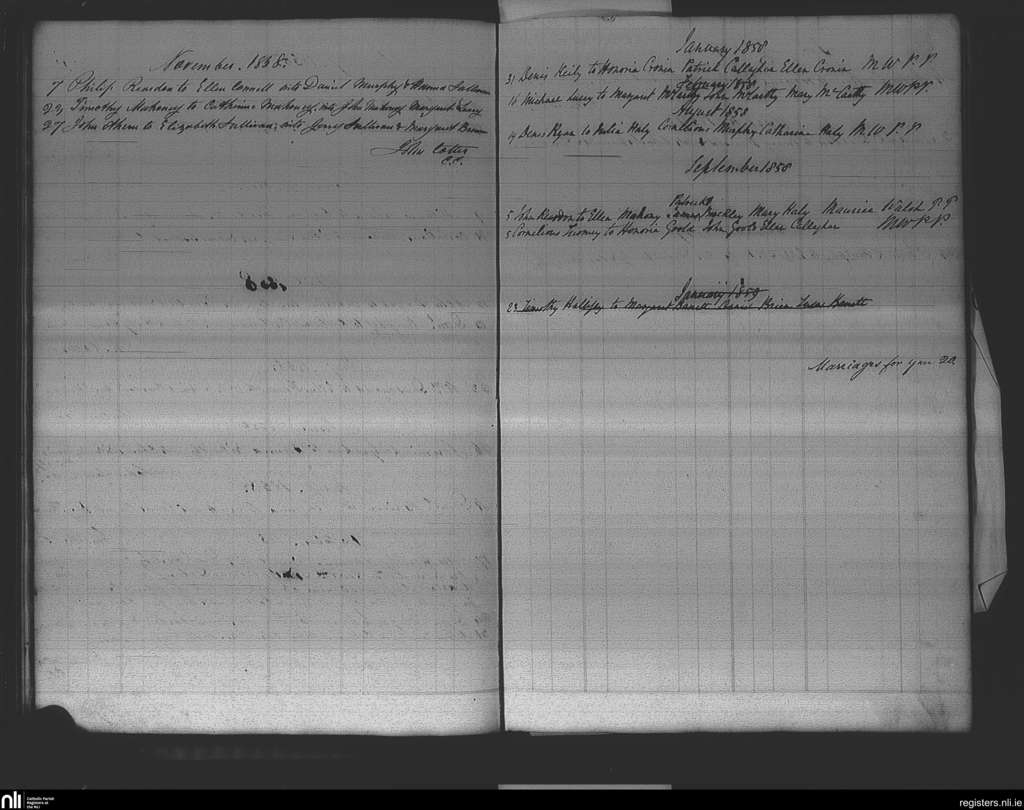 November 1858
7 Philip Reardon to Ellen Connell wits Daniel Murphy & Honora Sullivan
23 Timothy Mahoney to Catherine Mahoney, wits John Mahony Margaret
27 John Ahern to Elizabeth Sullivan; wits Jerry Sullivan & Margaret Brown
John Cotter
C.C.
Dec.
January 1858
31 Denis Keily to Honoria Cronin Patrick Callaghan Ellen Cronin M W P. P.
February 1858
16 Michael Lucey to Margaret McCarthy John McCarthy Mary McCarthy MWPP.
August 1858
19 Denis Ryan to Julia Haly Cornelious Murphy Catharine Haly M.W P. P
September 1858
Patrick
5 John Reardon to Ellen Mahony James Buckley Mary Haly Maurice Walsh P.P
5 Cornelious Twomey to Honoria Goold John Goold Ellen Callaghan MW P P.
January 1859
23 Timothy to Margaret Barrett Daniel Brien Barrett
Marriages for year 22.
nli
Catholic Parish
Registers at
the NLI
registers.nli.ie